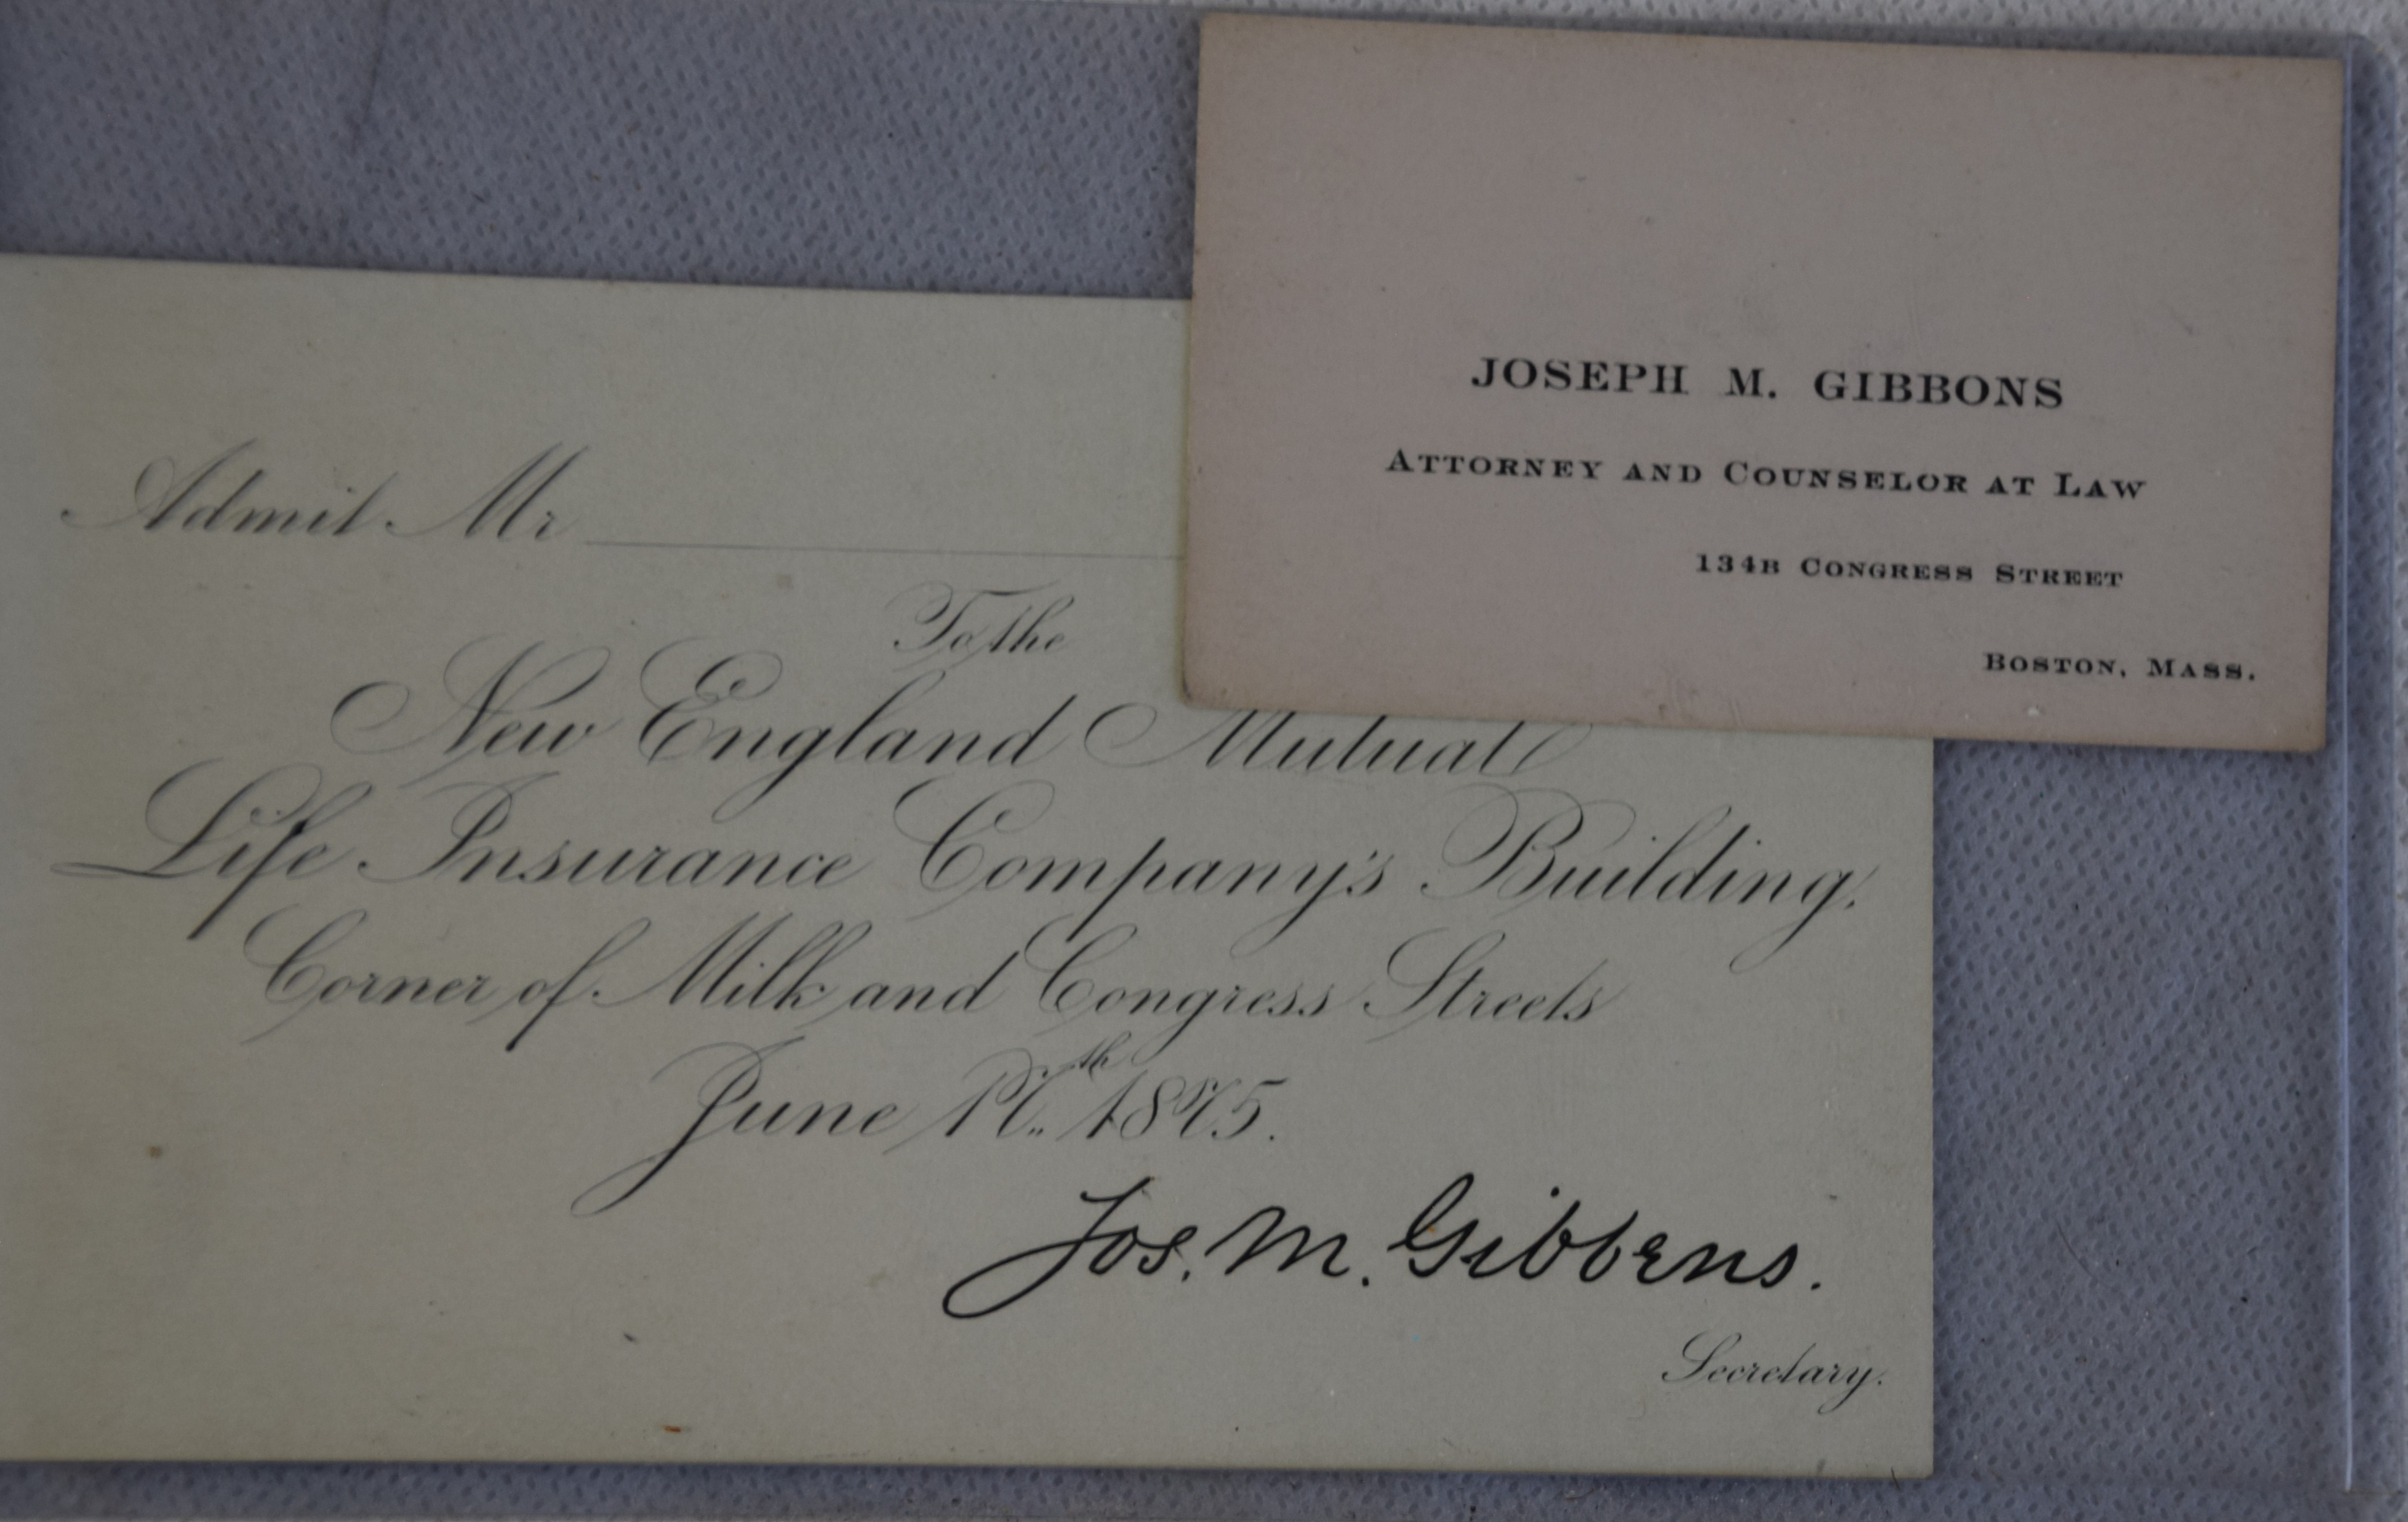 JOSEPH M. GIBBONS
ATTORNEY AND COUNSELOR AT LAW
134B CONGRESS STREET
BOSTON, MASS.
Admit Mr
To the
New England Mutual
Life Insurance Company's Building.
Corner of Milk and Congress Streets
June 17th 1875.
Jos. M. Gibbens.
Secretary.